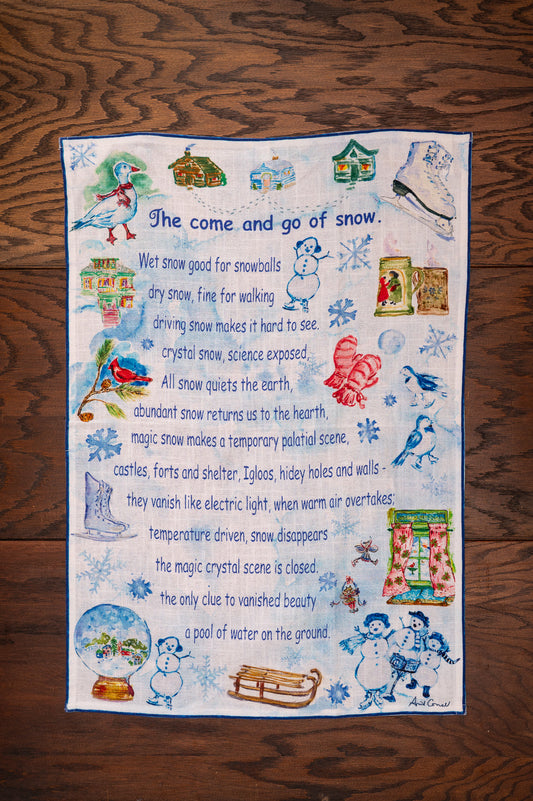 The come and go of snow.
Wet snow good for snowballs
dry snow, fine for walking
driving snow makes it hard to see.
crystal snow, science exposed,
All snow quiets the earth,
abundant snow returns us to the hearth,
magic snow makes a temporary palatial scene,
castles, forts and shelter, Igloos, hidey holes and walls -
they vanish like electric light, when warm air overtakes;
temperature driven, snow disappears
the magic crystal scene is closed.
the only clue to vanished beauty
a pool of water on the ground.